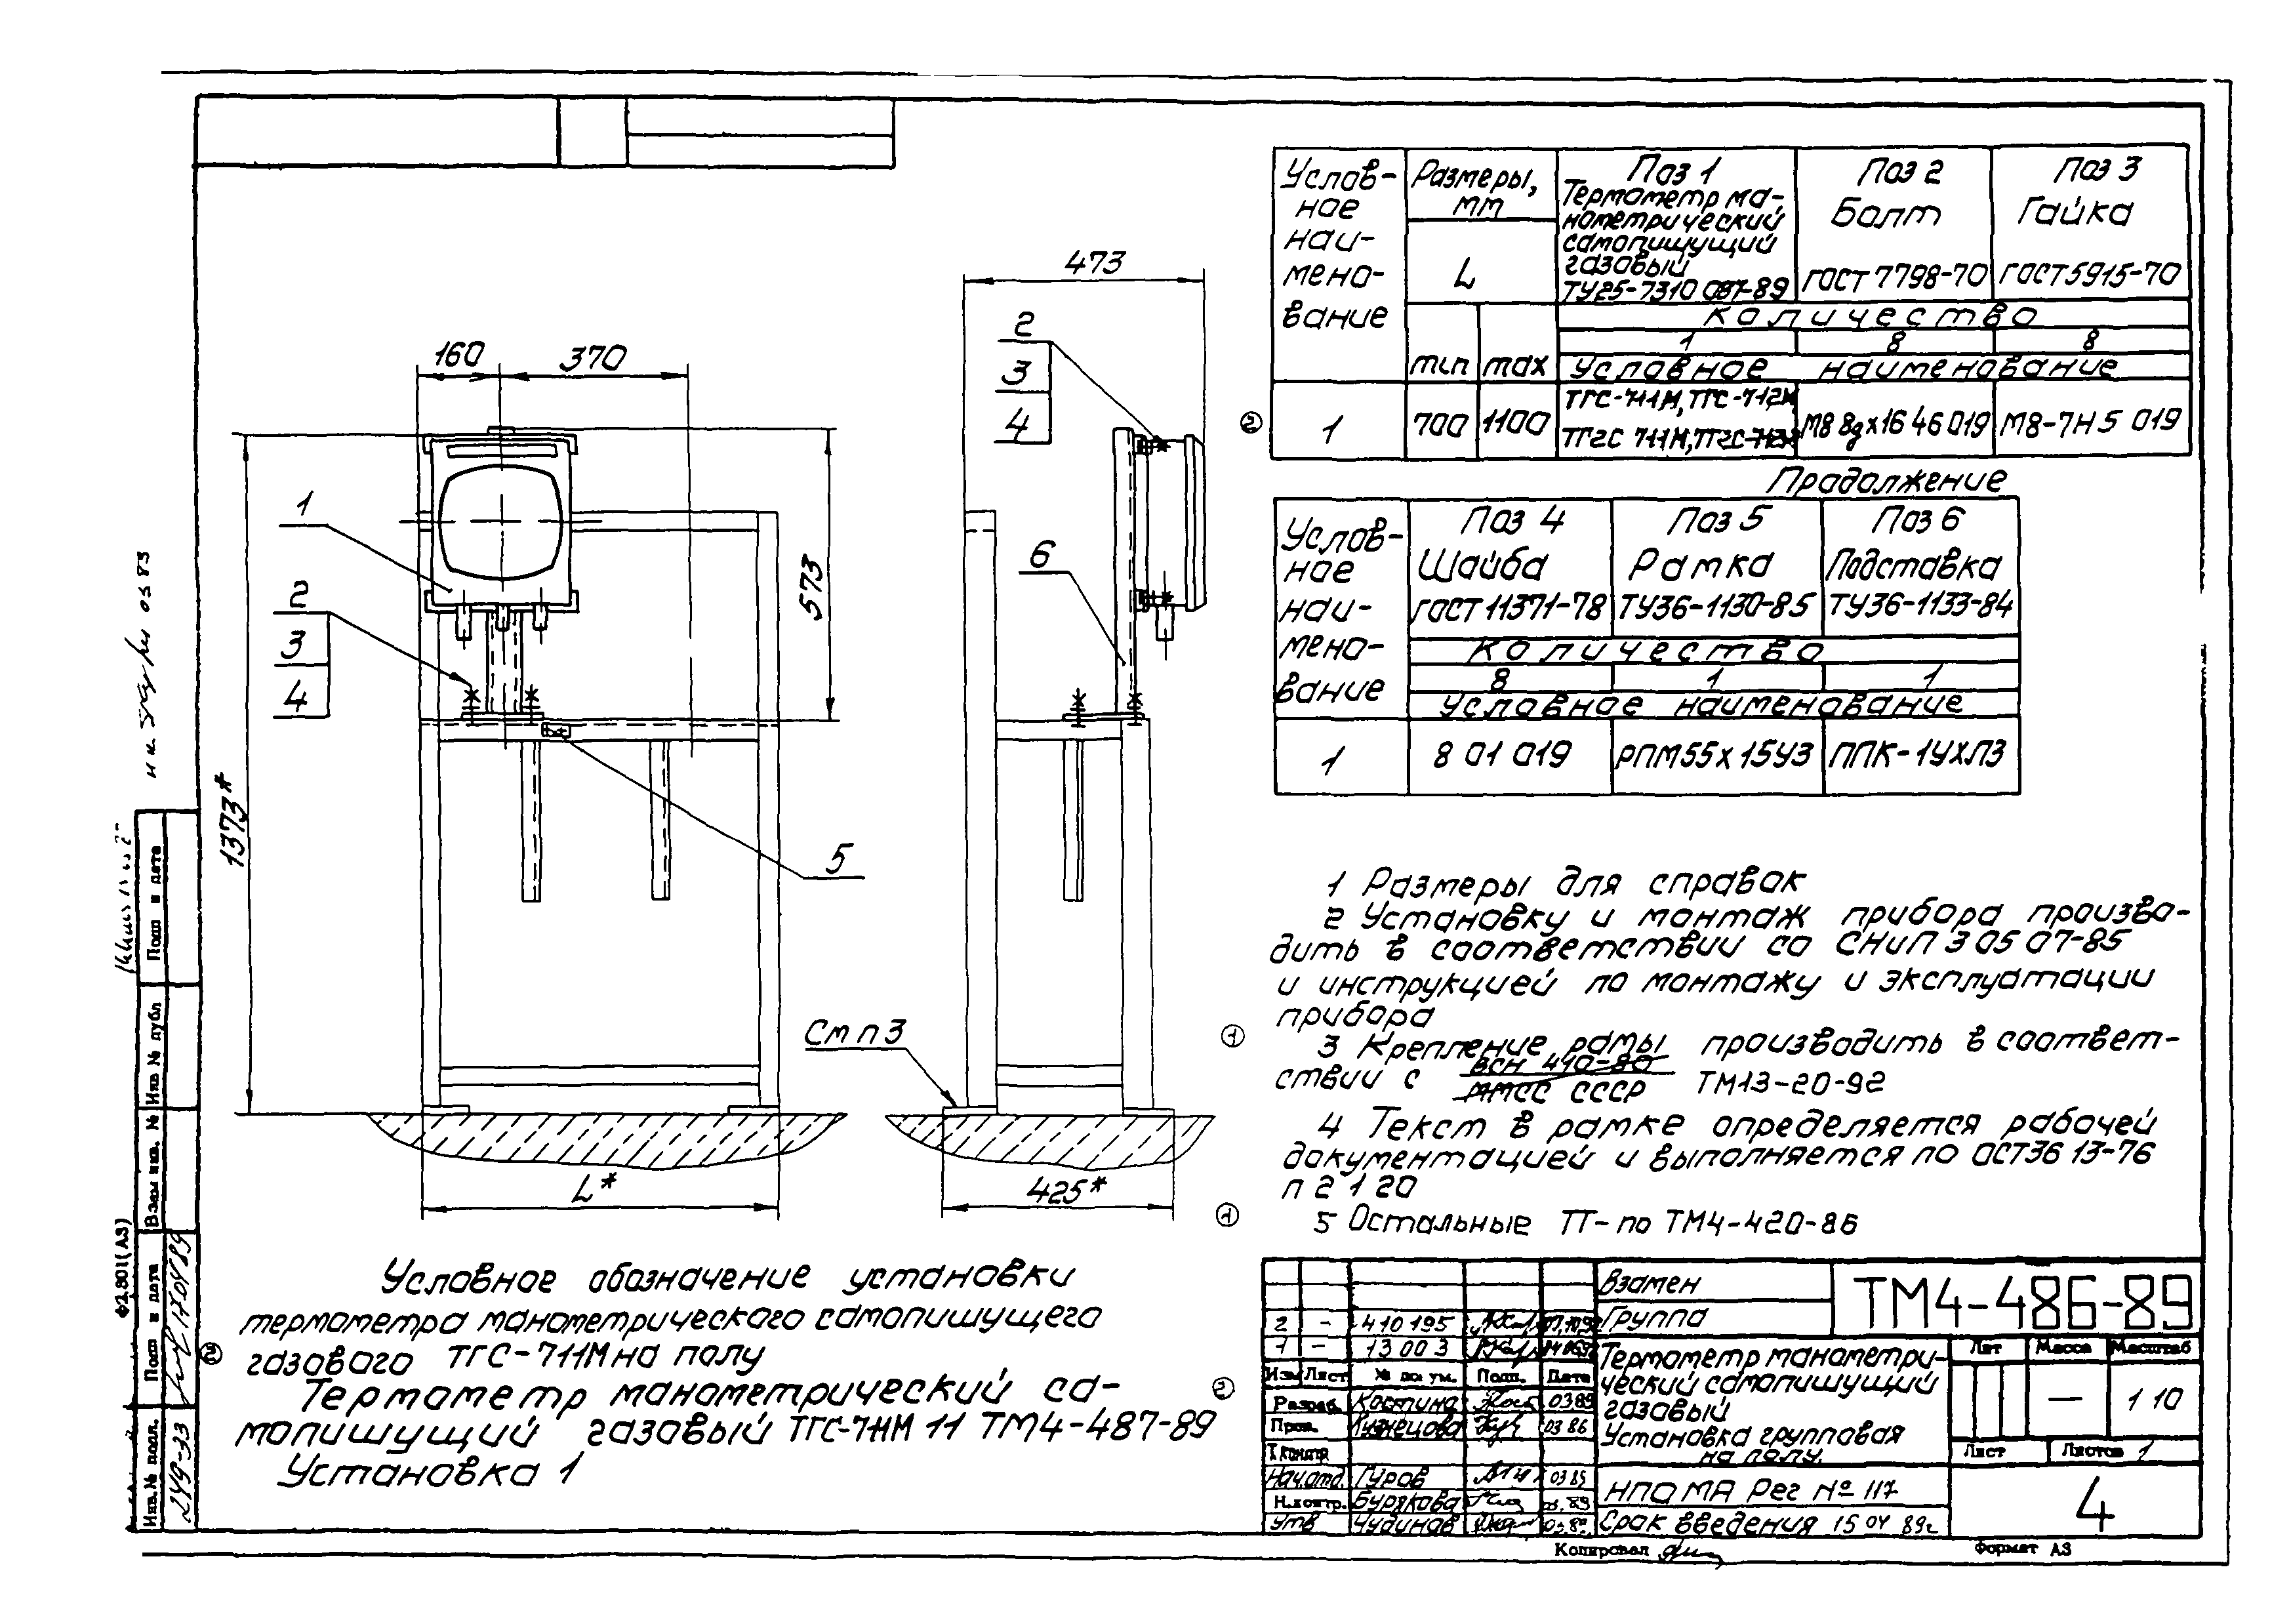 473
160
370
2
3
4
1
2
3
4
573
6
1373*
5
Ст п 3
L*
425*
Услов-
ное
наи-
мено-
вание
Размеры,
мм
L
min
max
Поз 1
Термометр ма-
нометрический
самопишущий
газовый
ТУ25-7310 087-89
Поз 2
Болт
ГОСТ 7798-70
Поз 3
Гайка
ГОСТ 5915-70
Количество
1 8 8
Условное наименование
2
1 700 1100
ТГС-711М, ТГС-712М
М8 8gx16 46 019 М8-7Н 5 019
Продолжение
Услов-
ное
наи-
мено-
вание
Поз 4
Шайба
ГОСТ 11371-78
Поз 5
Рамка
ТУ36-1130-85
Поз 6
Подставка
ТУ36-1133-84
Количество
8 1 1
Условное наименование
1 8 01 019 РПМ55х15У3 ППК-1УХЛ3
1 Размеры для справок
2 Установку и монтаж прибора произво-
дить в соответствии со СНиП 3 05 07-85
и инструкцией по монтажу и эксплуатации
прибора
1
3 Крепление рамы производить в соответ-
ствии с ВСН 410-80 ММСС СССР ТМ13-20-92
4 Текст в рамке определяется рабочей
документацией и выполняется по ОСТ36 13-76
п 2 1 20
1
5 Остальные ТТ- по ТМ4-420-86
Условное обозначение установки
термометра манометрического самопишущего
2
газового ТГС-711М на полу
Термометр манометрический са-
2
мопишущий газовый ТГС-711М 11 ТМ4-487-89
Установка 1
Взамен
Группа
ТМ4-486-89
2 - 410 195
1 - 13 00 3
Изм Лист № докум. Подп. Дата
Разраб. Костина 03 89
Пров. Кузнецова 03 86
Т.контр
Нач.отд. Гуров 03 89
Н.контр. Бурякова 03.89
Утв Чудинов
Термометр манометри-
ческий самопишущий
газовый
Установка групповая
на полу.
Лит Масса Масштаб
— 1 10
Лист Листов 1
НПО МА Рег № 117
Срок введения 15 04 89г
4
Копировал
Формат А3
Подп и дата
Инв № дубл
Взам инв. №
Подп и дата
Инв. № подл.
Ф2.801(А3)